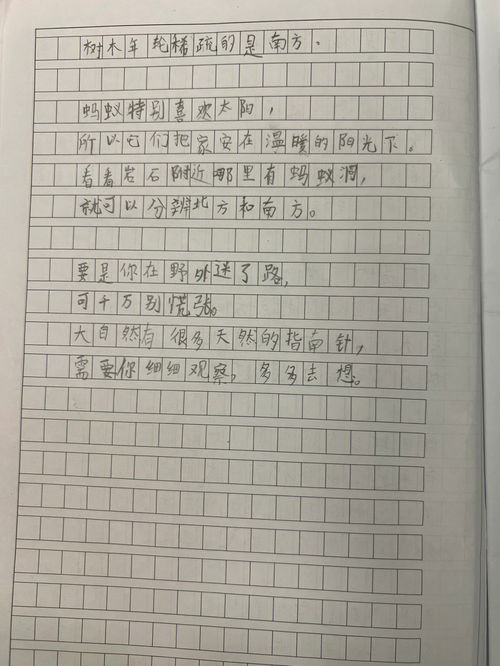 树木年轮稀疏的是南方.
蚂蚁特别喜欢太阳,
所以它们把家安在温暖的阳光下。
看看岩石附近哪里有蚂蚁洞,
就可以分辨北方和南方。
要是你在野外迷了路,
可千万别慌张。
大自然有很多天然的指南针,
需要你细细观察,多多去想。